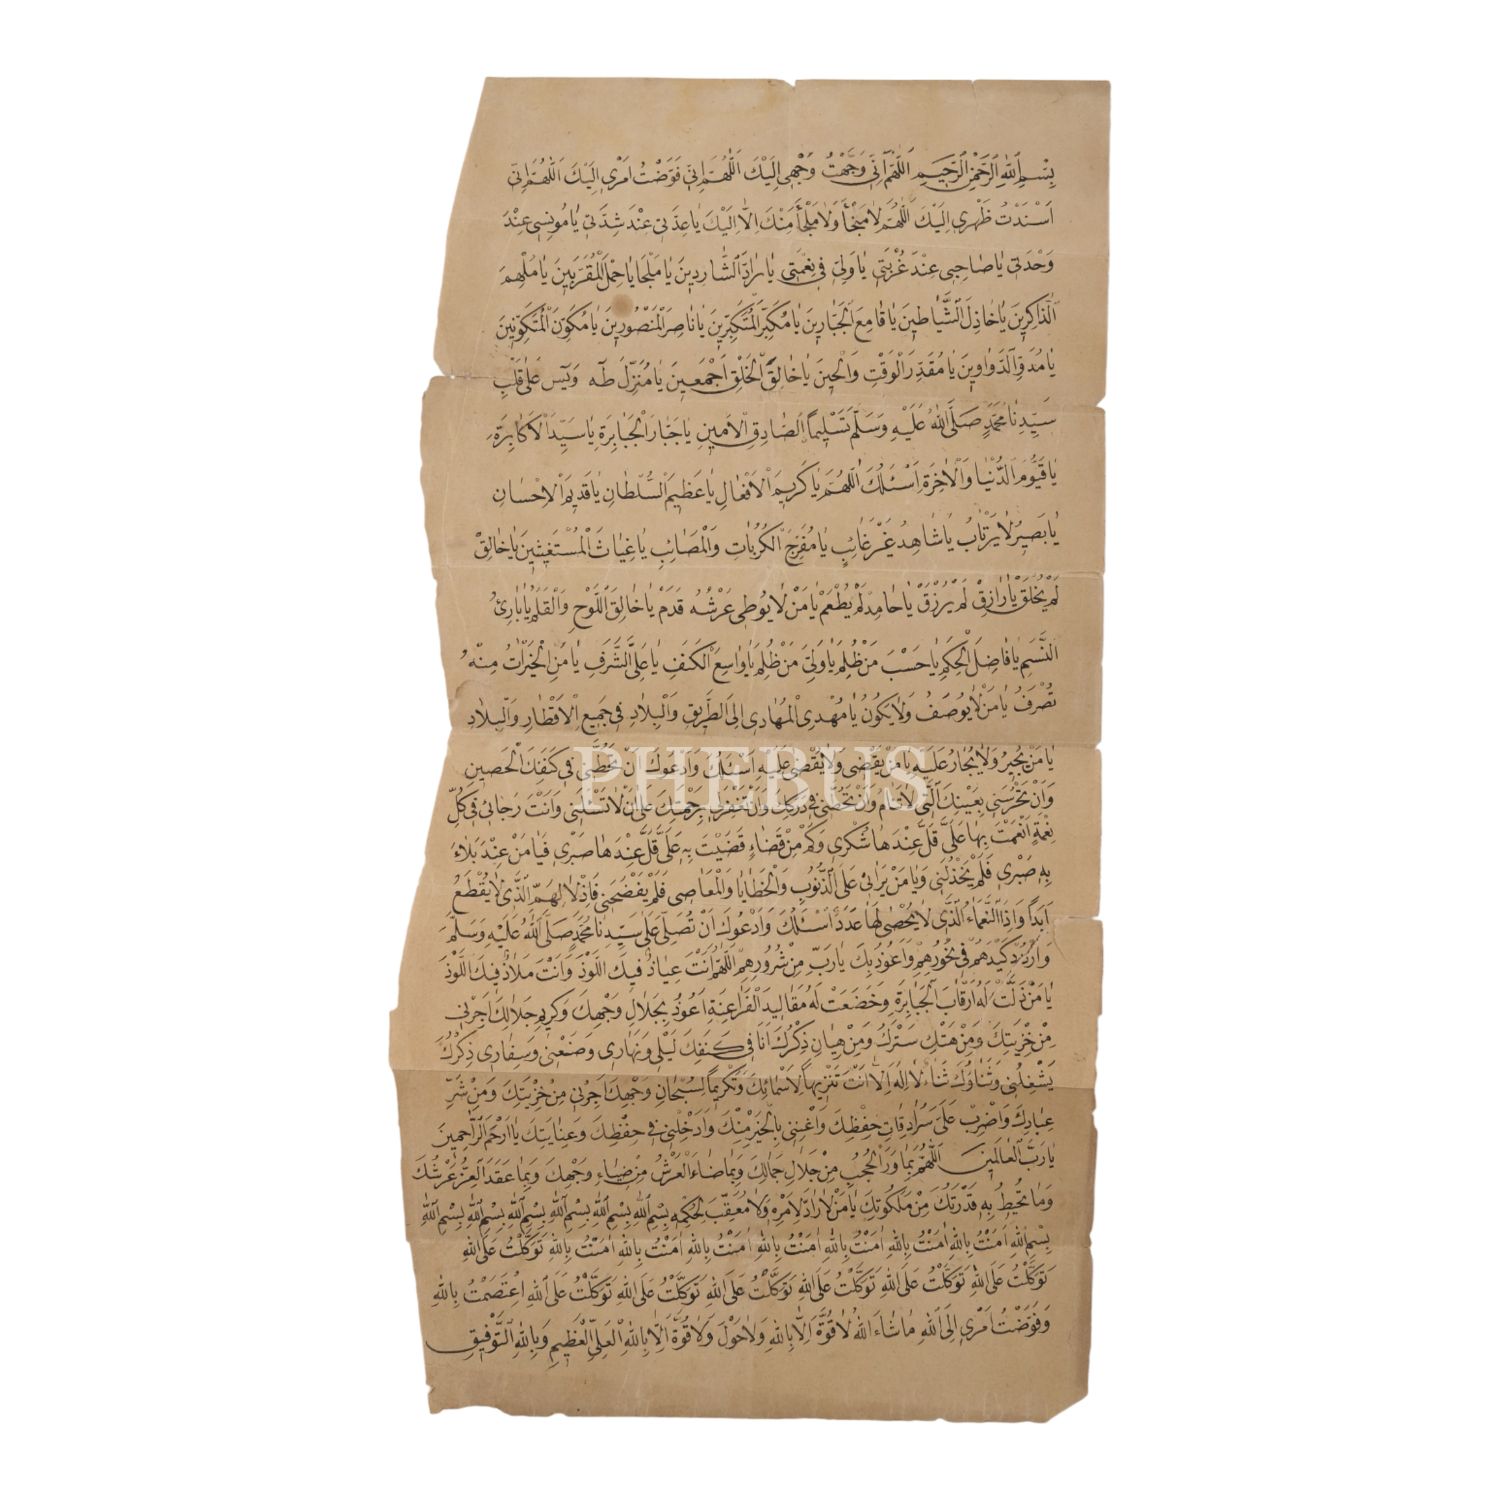 بِسْمِ اللهِ الرَّحْمٰنِ الرَّحِيمِ اَللّٰهُمَّ اِنِّي وَجَّهْتُ وَجْهِي اِلَيْكَ اَللّٰهُمَّ اِنِّي فَوَّضْتُ اَمْرِي اِلَيْكَ اَللّٰهُمَّ اِنِّي
اَسْنَدْتُ ظَهْرِي اِلَيْكَ اَللّٰهُمَّ لَا مَنْجَأَ وَلَا مَلْجَأَ مِنْكَ اِلَّا اِلَيْكَ يَا عُدَّتِي عِنْدَ شِدَّتِي يَا مُونِسِي عِنْدَ
وَحْدَتِي يَا صَاحِبِي عِنْدَ غُرْبَتِي يَا وَلِيِّ فِي نِعْمَتِي يَا رَادَّ الشَّارِدِينَ يَا مَلْجَا يَا حِمَلَ الْمُقَرَّبِينَ يَا مُلْهِمَ
الذَّاكِرِينَ يَا خَاذِلَ الشَّيَاطِينَ يَا قَامِعَ الْجَبَّارِينَ يَا مُكَبِّرَ الْمُتَكَبِّرِينَ يَا نَاصِرَ الْمَنْصُورِينَ يَا مُكَوِّنَ الْمُتَكَوِّنِينَ
يَا الدَّوَاوِينَ يَا مُقَدِّرَ الْوَقْتِ وَالْحِينِ يَا خَالِقَ الْخَلْقِ اَجْمَعِينَ يَا مُنَزِّلَ طٰهٰ وَيٰسٓ عَلَى قَلْبِ
سَيِّدِنَا مُحَمَّدٍ صَلَّى اللهُ عَلَيْهِ وَسَلَّمَ تَسْلِيمًا الصَّادِقِ الْاَمِينِ يَا جَبَّارَ الْجَبَابِرَةِ يَا سَيِّدَ الْاَكَابِرَةِ
يَا قَيُّومَ الدُّنْيَا وَالْاٰخِرَةِ اَسْئَلُكَ اَللّٰهُمَّ يَا كَرِيمَ الْاَفْعَالِ يَا عَظِيمَ السُّلْطَانِ يَا قَدِيمَ الْاِحْسَانِ
يَا بَصِيرُ لَا يَرْتَابُ يَا شَاهِدُ غَيْرَ غَائِبٍ يَا مُفَرِّجَ الْكُرُبَاتِ وَالْمَصَائِبِ يَا غِيَاثَ الْمُسْتَغِيثِينَ يَا خَالِقْ
لَمْ يُخْلَقْ يَا رَازِقْ لَمْ يُرْزَقْ يَا حَامِدْ لَمْ يُطْعَمْ يَا مَنْ لَا يُوطِي عَرْشُهُ قَدَمْ يَا خَالِقَ اللَّوْحِ وَالْقَلَمِ يَا بَارِئُ
النَّسَمِ يَا فَاضِلَ الْحِكَمِ يَا حَسْبَ مَنْ ظُلِمَ يَا وَلِيَّ مَنْ ظُلِمَ يَا وَاسِعَ الْكَنَفِ يَا عَلِيَّ الشَّرَفِ يَا مَنِ الْخَيْرَاتُ مِنْهُ
تُصْرَفُ يَا مَنْ لَا يُوصَفُ وَلَا يَكُونُ يَا مُهْدِي الْمُهَادِي اِلَى الطَّرِيقِ وَالْبِلَادِ فِي جَمِيعِ الْاَقْطَارِ وَالْبِلَادِ
يَا مَنْ يُجِيرُ وَلَا يُجَارُ عَلَيْهِ يَا مَنْ يَقْضِي وَلَا يُقْضَى عَلَيْهِ اَسْئَلُكَ وَاَدْعُوكَ اَنْ فِي كَنَفِكَ الْحَصِينِ
وَاَنْ تَحْرُسَنِي بِعَيْنِكَ الَّتِي لَا تَنَامُ وَاَنْ عَلَى اَنْ وَاَنْتَ رَجَائِي فَكَمْ
نِعْمَةٍ اَنْعَمْتَ بِهَا عَلَيَّ قَلَّ عِنْدَهَا شُكْرِي وَكَمْ مِنْ قَضَاءٍ قَضَيْتَ بِهِ عَلَيَّ قَلَّ عِنْدَهَا صَبْرِي فَيَا مَنْ عِنْدَ بَلَاءَ
بِهِ صَبْرِي فَلَمْ يَخْذُلْنِي وَيَا مَنْ يَرَانِي عَلَى الذُّنُوبِ وَالْخَطَايَا وَالْمَعَاصِي فَلَمْ يَفْضَحْنِي الَّذِي لَا يُقْطَعُ
اَبَدًا وَاِذَا النَّعْمَاءُ الَّذِي لَا يُحْصَى لَهَا عَدَدٌ اَسْئَلُكَ وَاَدْعُوكَ اَنْ تُصَلِّيَ عَلَى سَيِّدِنَا مُحَمَّدٍ صَلَّى اللهُ عَلَيْهِ وَسَلَّمَ
وَارْدُدْ كَيْدَهُمْ فِي نُحُورِهِمْ وَاَعُوذُ بِكَ يَا رَبِّ مِنْ شُرُورِهِمْ اَللّٰهُمَّ اَنْتَ عِيَاذٌ فِيكَ اللَّوْذُ وَاَنْتَ مَلَاذٌ فِيكَ اللَّوْذُ
يَا مَنْ ذَلَّتْ لَهُ اَرْقَابَ الْجَبَابِرَةِ وَخَضَعَتْ لَهُ مَقَالِيدَ الْفَرَاعِنَةِ اَعُوذُ بِجَلَالِ وَجْهِكَ وَكَرِيمِ جَلَالِكَ اَجِرْنِي
مِنْ خِزْيِكَ وَمِنْ هَتْكِ سَتْرِكَ وَمِنْ ذِكْرِكَ اَنَا فِي كَنَفِكَ لَيْلِي وَنَهَارِي وَسِفَارِي ذِكْرُكَ
يَشْغَلُنِي وَثَنَاؤُكَ ثَنَاءٌ لَا اِلٰهَ اِلَّا اَنْتَ تَنْزِيهًا لِاَسْمَائِكَ وَتَكْرِيمًا لِسُبُحَانِ وَجْهِكَ اَجِرْنِي مِنْ خِزْيِكَ وَمِنْ شَرِّ
عِبَادِكَ وَاضْرِبْ عَلَيَّ سَرَادِقَاتِ حِفْظِكَ وَاَغْنِنِي بِالْخَيْرِ مِنْكَ وَاَدْخِلْنِي فِي حِفْظِكَ وَعِنَايَتِكَ يَا اَرْحَمَ الرَّاحِمِينَ
يَا رَبَّ الْعَالَمِينَ اَللّٰهُمَّ بِمَا وَرَاءَ الْحُجُبِ مِنْ جَلَالِ جَمَالِكَ وَبِمَا ضَاءَ الْعَرْشُ مِنْ ضِيَاءِ وَجْهِكَ وَبِمَا عَقَدَ الْعِزُّ عَرْشُكَ
وَمَا تُحِيطُ بِهِ قُدْرَتُكَ مِنْ مَلَكُوتِكَ يَا مَنْ لَا رَادَّ لِاَمْرِهِ وَلَا مُعَقِّبَ لِحُكْمِهِ بِسْمِ اللهِ بِسْمِ اللهِ بِسْمِ اللهِ بِسْمِ اللهِ بِسْمِ اللهِ بِسْمِ اللهِ
بِسْمِ اللهِ اٰمَنْتُ بِاللهِ اٰمَنْتُ بِاللهِ اٰمَنْتُ بِاللهِ اٰمَنْتُ بِاللهِ اٰمَنْتُ بِاللهِ اٰمَنْتُ بِاللهِ اٰمَنْتُ بِاللهِ تَوَكَّلْتُ عَلَى اللهِ
تَوَكَّلْتُ عَلَى اللهِ تَوَكَّلْتُ عَلَى اللهِ تَوَكَّلْتُ عَلَى اللهِ تَوَكَّلْتُ عَلَى اللهِ تَوَكَّلْتُ عَلَى اللهِ تَوَكَّلْتُ عَلَى اللهِ اِعْتَصَمْتُ بِاللهِ
وَفَوَّضْتُ اَمْرِي اِلَى اللهِ مَا شَاءَ اللهُ لَا قُوَّةَ اِلَّا بِاللهِ وَلَا حَوْلَ وَلَا قُوَّةَ اِلَّا بِاللهِ الْعَلِيِّ الْعَظِيمِ وَبِاللهِ التَّوْفِيقِ
PHEBUS